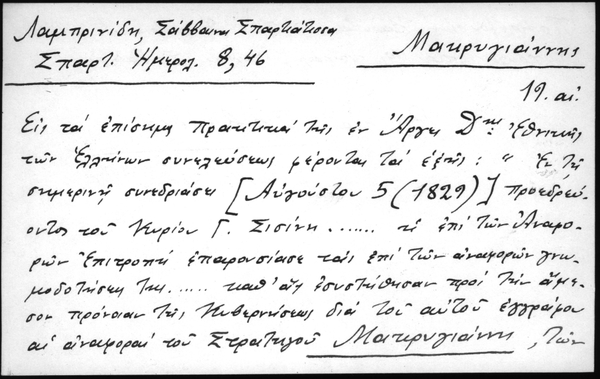 Λαμπρινίδη, Σάββαινα Σπαρτιάτισσα
Σπαρτ. Ἡμερολ. 8, 46
Μακρυγιάννης
19. αἰ.
Εἰς τά ἐπίσημα Πρακτικά τῆς ἐν Ἄργει Δης Ἐθνικῆς
τῶν Ἑλλήνων συνελεύσεως φέρονται τά ἑξῆς: " Ἐν τῇ
σημερινῇ συνεδριάσει [Αὐγούστου 5 (1829)] προεδρεύ-
οντος τοῦ Κυρίου Γ. Σισίνη ...... ἡ ἐπί τῶν Ἀναφο-
ρῶν Ἐπιτροπή ἐπαρουσίασε τάς ἐπί τῶν ἀναφορῶν γνω-
μοδοτήσεις της ..... καθ' ἅς ἐσυστήθησαν πρός τήν ἄμε-
σον πρόνοιαν τῆς Κυβερνήσεως διά τοῦ αὐτοῦ ἐγγράφου
αἱ ἀναφοραί τοῦ Στρατηγοῦ Μακρυγιάννη, τῶν